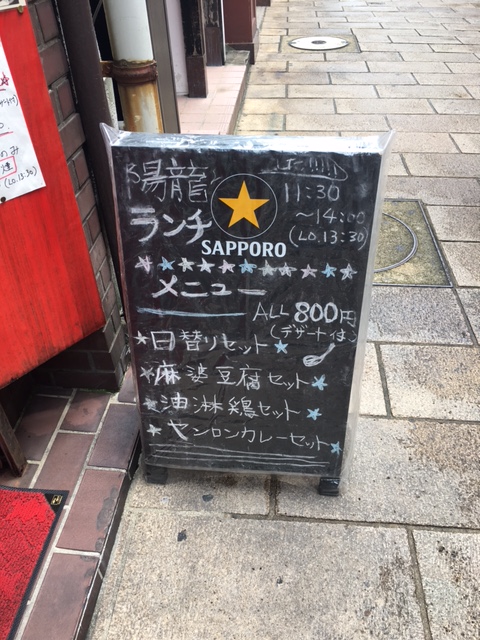 陽龍
ランチ
SAPPORO
11:30
〜14:00
(LO.13:30)
メニュー
ALL 800円
(デザート付)
★日替りセット★
★麻婆豆腐セット★
★油淋鶏セット★
★ヤンロンカレーセット★
(LO.13:30)